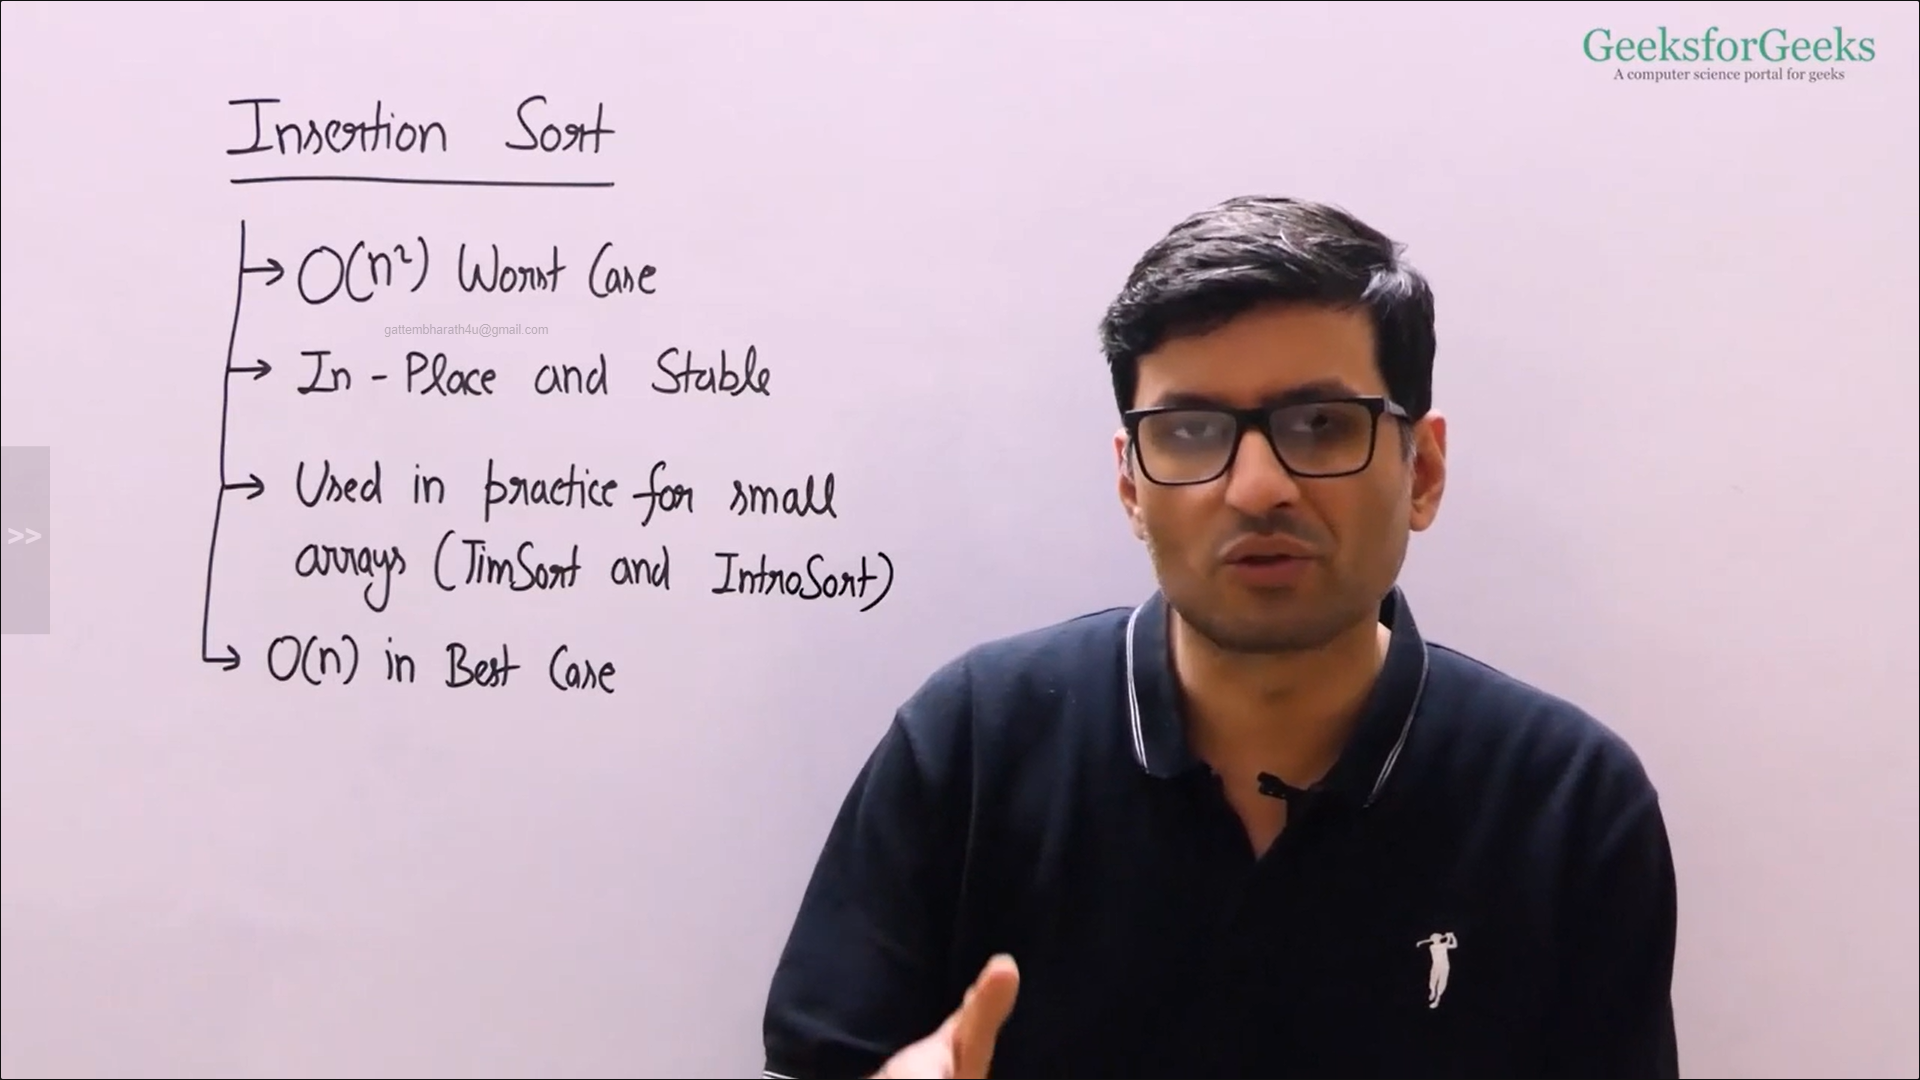 GeeksforGeeks
A computer science portal for geeks
Insertion Sort
O(n²) Worst Case
gattembharath4u@gmail.com
In-Place and Stable
>>
Used in practice for small
arrays (TimSort and IntroSort)
O(n) in Best Case